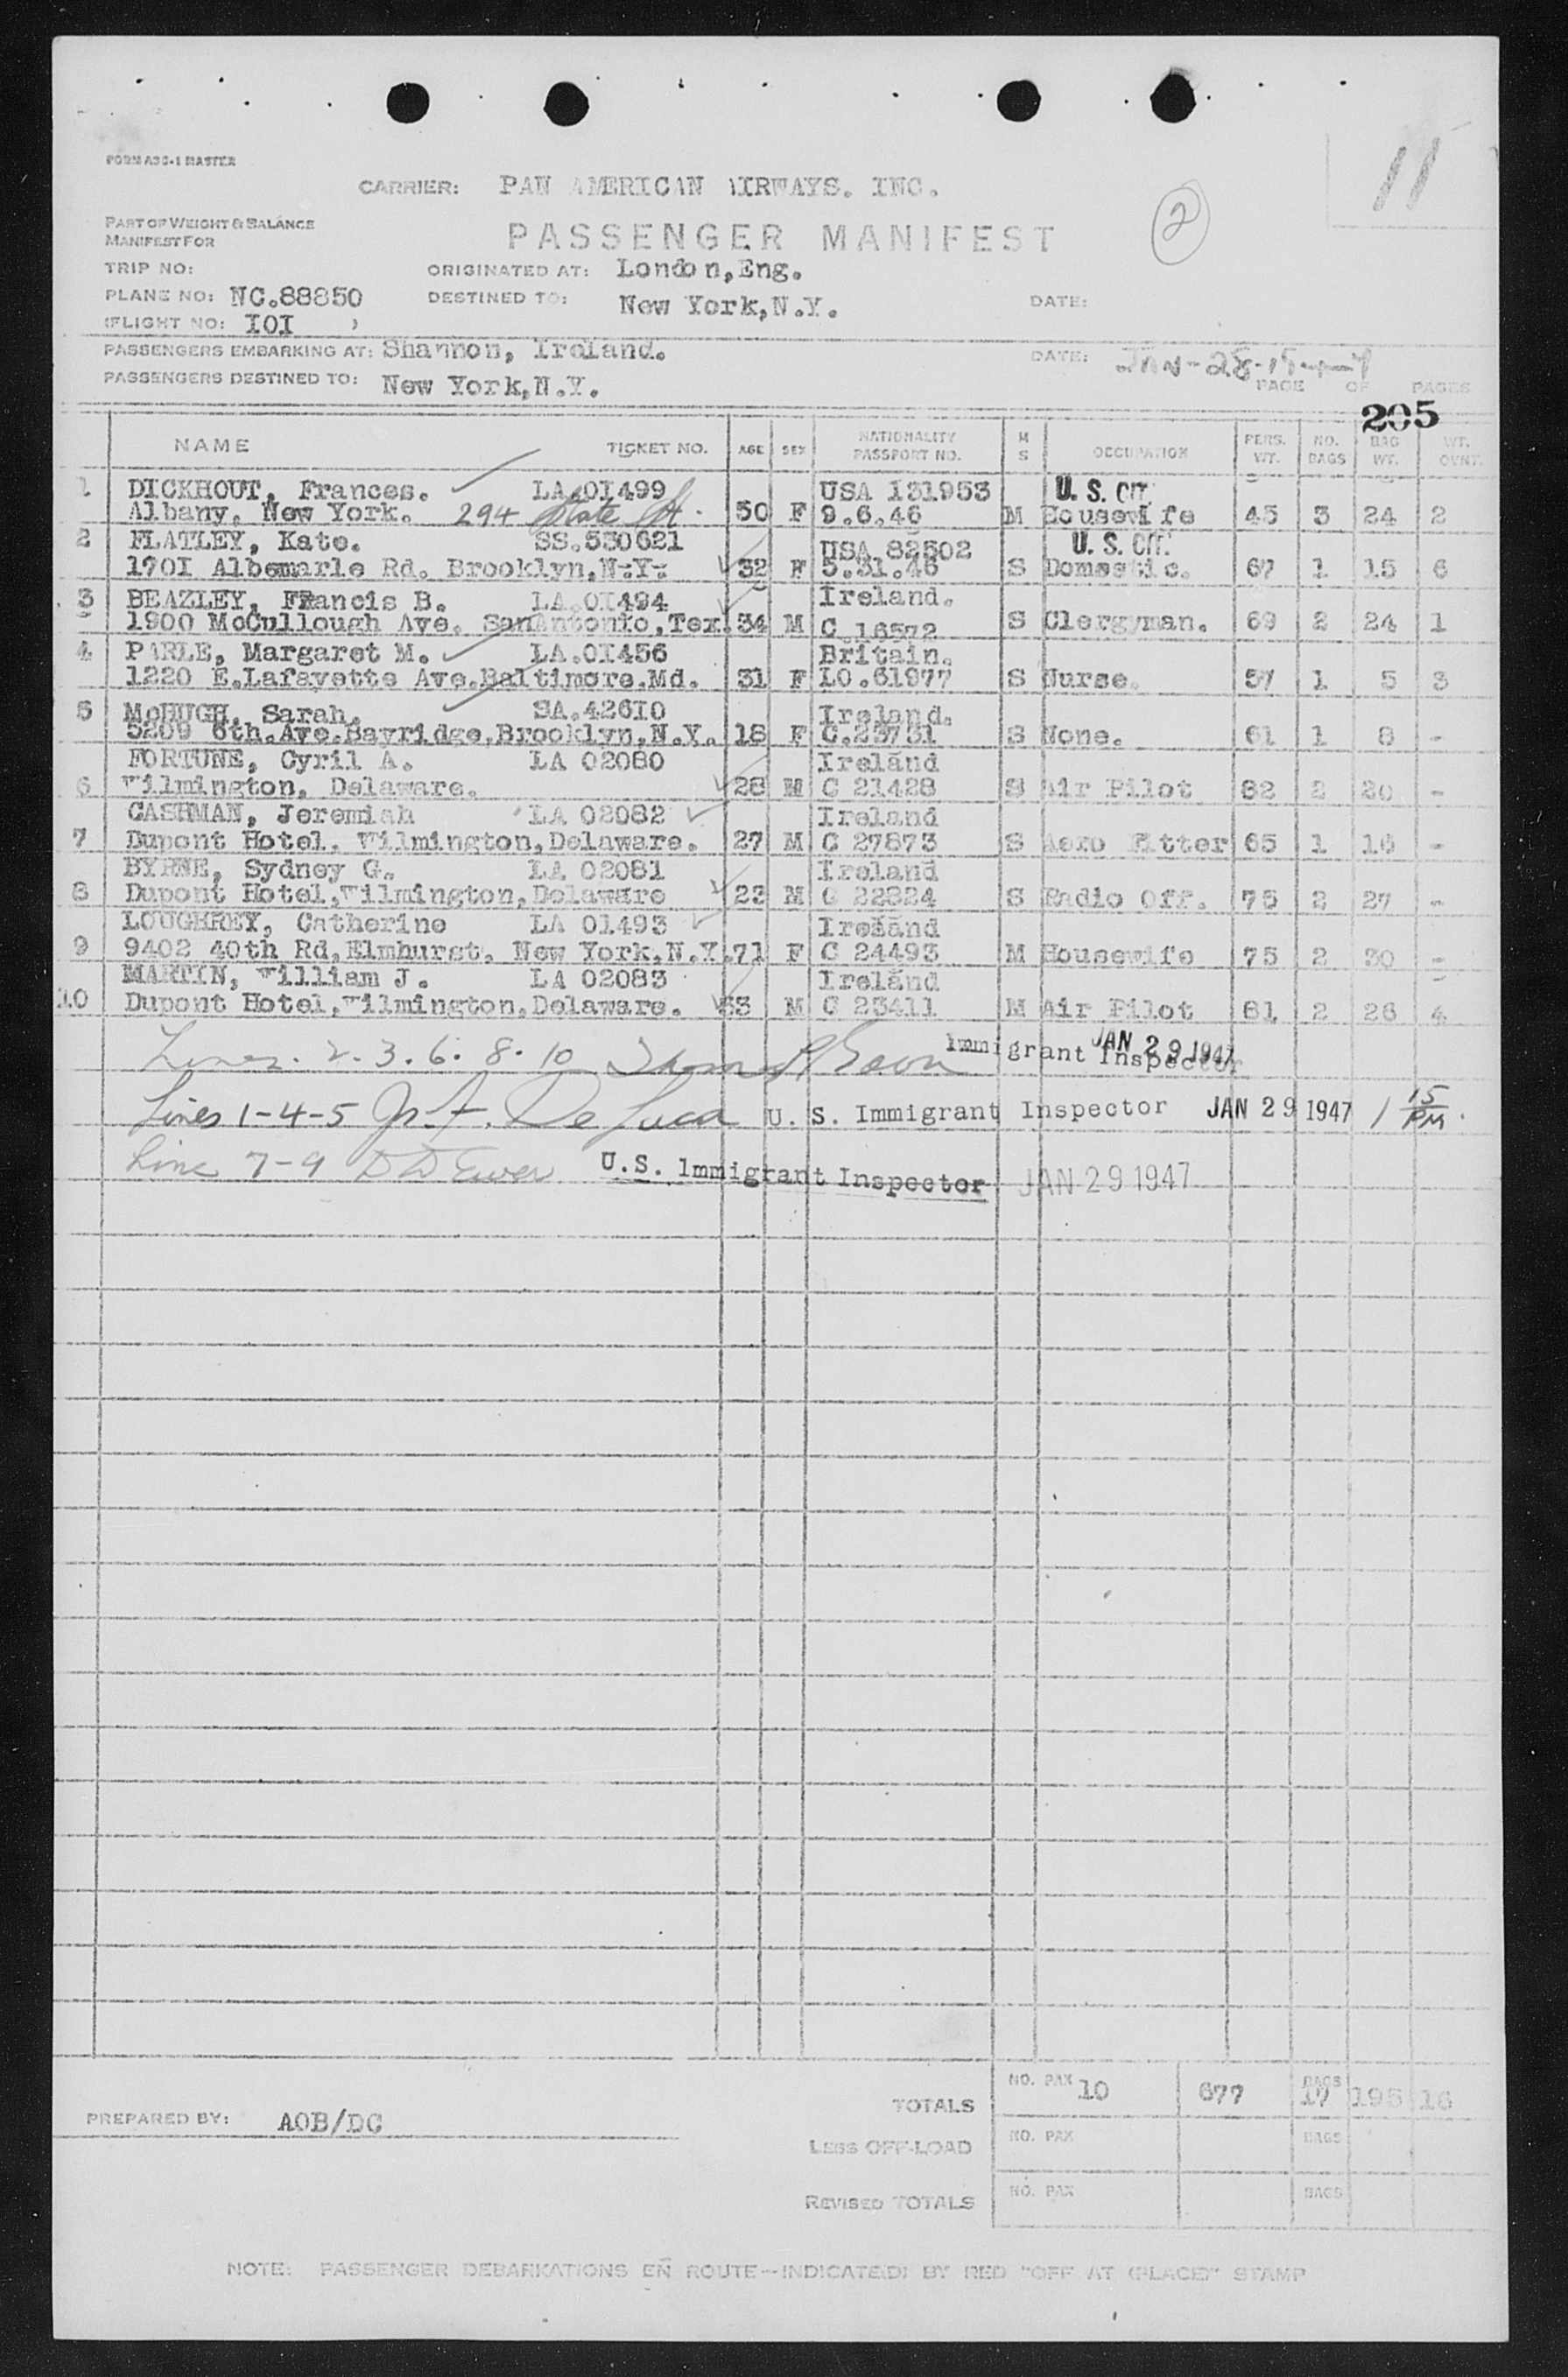 11
FORM ASC-1 MASTER
CARRIER: PAN AMERICAN AIRWAYS. INC.
2
PART OF WEIGHT & BALANCE
MANIFEST FOR
PASSENGER MANIFEST
TRIP NO:
ORIGINATED AT: London,Eng.
PLANE NO: NC.88850
DESTINED TO: New York,N.Y.
DATE:
(FLIGHT NO: IOI )
PASSENGERS EMBARKING AT: Shannon, Ireland.
DATE: JAN-28-
PASSENGERS DESTINED TO: New York,N.Y.
PAGE OF PAGES
205
NAME TICKET NO. AGE SEX NATIONALITY PASSPORT NO. M S OCCUPATION PERS. WT. NO. BAGS BAG WT. WT. OVNT.
1 DICKHOUT, Frances. LA.OI499 USA 131953 U. S. CIT.
Albany, New York. 294 State St. 50 F 9.6.46 M Housewife 45 3 24 2
2 FLATLEY, Kate. SS.530621 USA 82502 U. S. CIT.
170I Albemarle Rd. Brooklyn,N:Y: 32 F 5.31.46 S Domestic. 67 1 15 6
3 BEAZLEY, Francis B. LA.OI494 Ireland.
1900 McCullough Ave. SanAntonio,Tex. 34 M C.16572 S Clergyman. 69 2 24 1
4 PARLE, Margaret M. LA.OI456 Britain.
1220 E.Lafayette Ave.Baltimore.Md. 31 F LO.61977 S Nurse. 57 1 5 3
5 McHUGH, Sarah. SA.426I0 Ireland.
5209 6th.Ave.Bayridge,Brooklyn,N.Y. 18 F C.23731 S None. 61 1 8 -
FORTUNE, Cyril A. LA 02080 Ireland
6 Wilmington, Delaware. 28 M C 21428 S Air Pilot 82 2 20 -
CASHMAN, Jeremiah LA 02082 Ireland
7 Dupont Hotel, Wilmington,Delaware. 27 M C 27873 S Aero Fitter 65 1 16 -
BYRNE, Sydney G. LA 02081 Ireland
8 Dupont Hotel,Wilmington,Delaware 23 M C 22824 S Radio Off. 75 2 27 -
LOUGHREY, Catherine LA 01493 Ireland
9 9402 40th Rd,Elmhurst, New York,N.Y. 71 F C 24493 M Housewife 75 2 30 -
MARTIN, William J. LA 02083 Ireland
10 Dupont Hotel,Wilmington,Delaware. 33 M C 23411 M Air Pilot 81 2 26 4
Lines. 2. 3. 6. 8. 10 Immigrant Inspector JAN 29 1947
Lines 1-4-5 De Luca U. S. Immigrant Inspector JAN 29 1947 1 15 PM.
Line 7-9 D D Ewen U.S. Immigrant Inspector JAN 29 1947
TOTALS NO. PAX 10 677 BAGS 17 195 16
PREPARED BY: AOB/DC
LESS OFF-LOAD NO. PAX BAGS
REVISED TOTALS NO. PAX BAGS
NOTE: PASSENGER DEBARKATIONS EN ROUTE--INDICATE(D) BY RED "OFF AT (PLACE)" STAMP